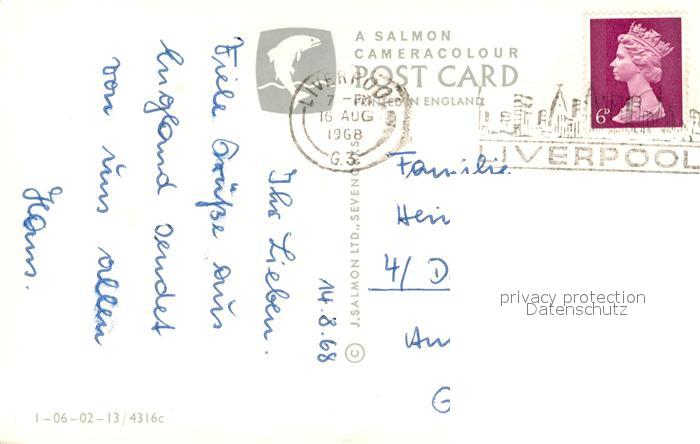 A SALMON
CAMERACOLOUR
POST CARD
PRINTED IN ENGLAND
LIVERPOOL
7 - PM
16 AUG
1968
G.3.
LIVERPOOL
6D
14.8.68
Ihr Lieben.
Viele Grüße aus
England sendet
von uns allen
Hans.
Familie
Hein
4/ D
G
privacy protection
Datenschutz
© J. SALMON LTD., SEVENOAKS
1-06-02-13/4316c